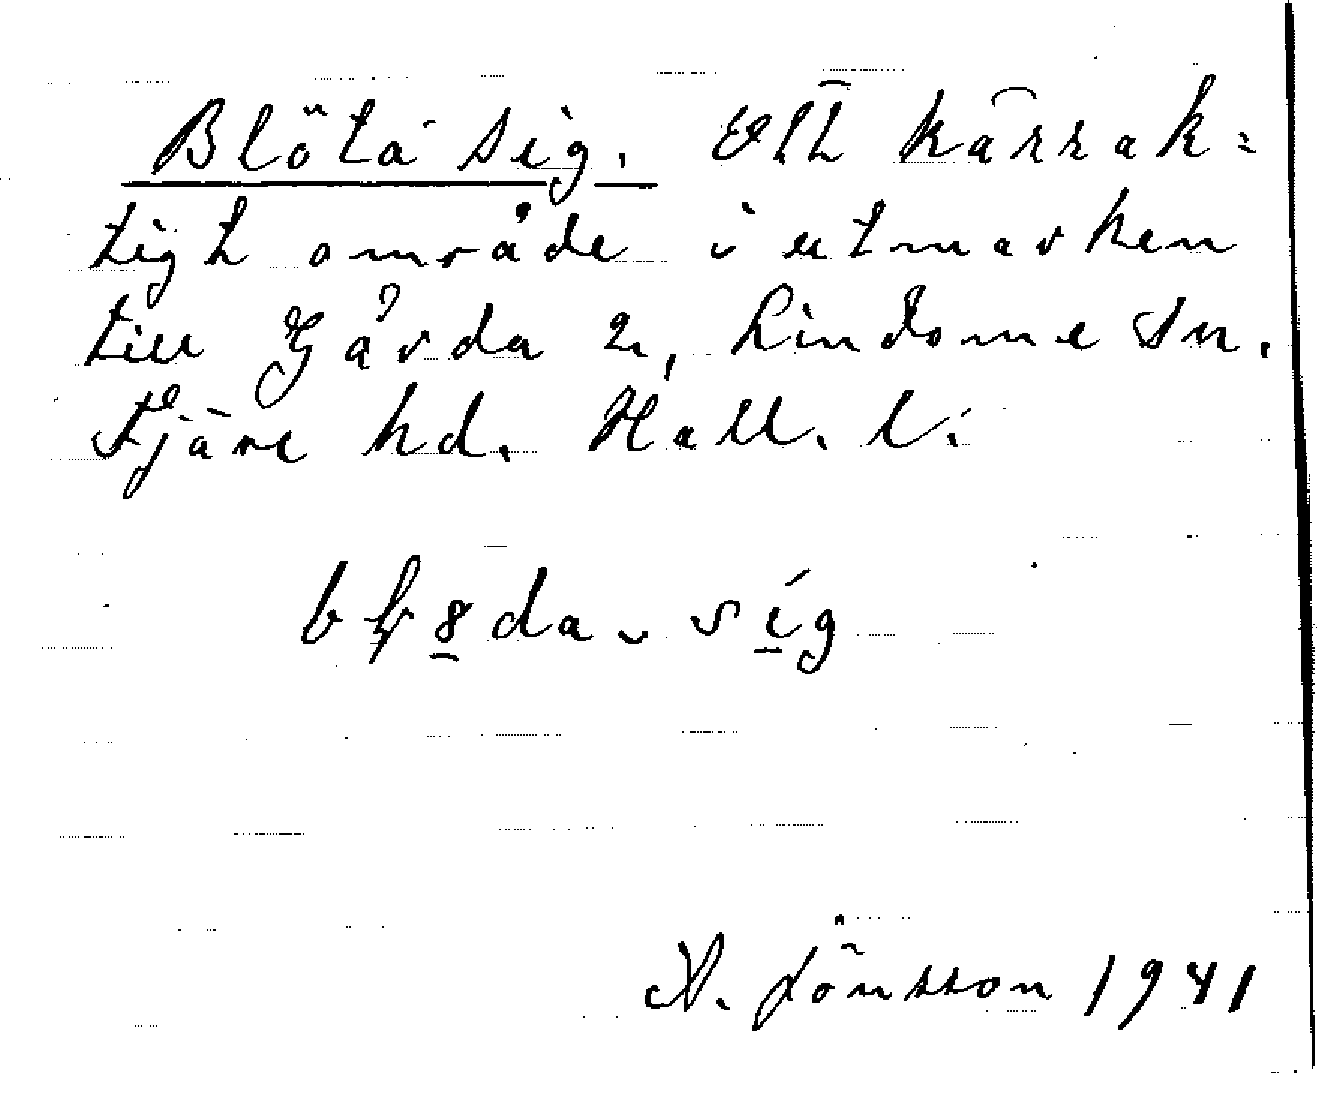 Blöta sig. Ett kärrak=
tigt område i utmarken
till Gårda 2, Lindome sn.
Fjäre hd. Hall. l.
da
sig
A. Jönsson 1941